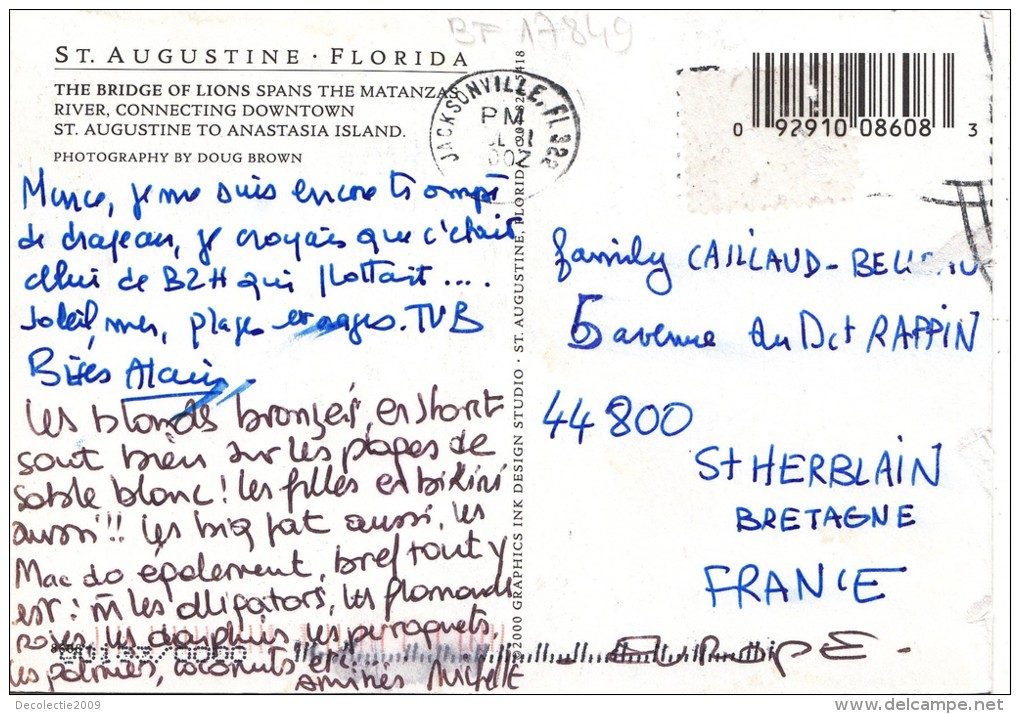 BF 17849
ST. AUGUSTINE · FLORIDA
THE BRIDGE OF LIONS SPANS THE MATANZAS
RIVER, CONNECTING DOWNTOWN
ST. AUGUSTINE TO ANASTASIA ISLAND.
PHOTOGRAPHY BY DOUG BROWN
JACKSONVILLE, FL 322
PM
0 92910 08608 3
je me suis encore trompé
de drapeau, je croyais que c'était
celui de BZH qui flottait ....
soleil, mer, plages . TVB
Bises Alain
Les blonds bronzés, en short
sont bien sur les plages de
sable blanc ! les filles en bikini
aussi !! Les big fat aussi, les
Mac do également, bref tout y
est : m̄ les alligators, les flamands
roses, les dauphins les perroquets,
les palmiers, coconuts etc.
amitiés Michelle
family CAILLAUD-
5 avenue du Dct RAPPIN
44 800
St HERBLAIN
BRETAGNE
FRANCE
EUROPE.
©2000 GRAPHICS INK DESIGN STUDIO · ST. AUGUSTINE, FLORIDA
Decolectie2009
delcampe.net